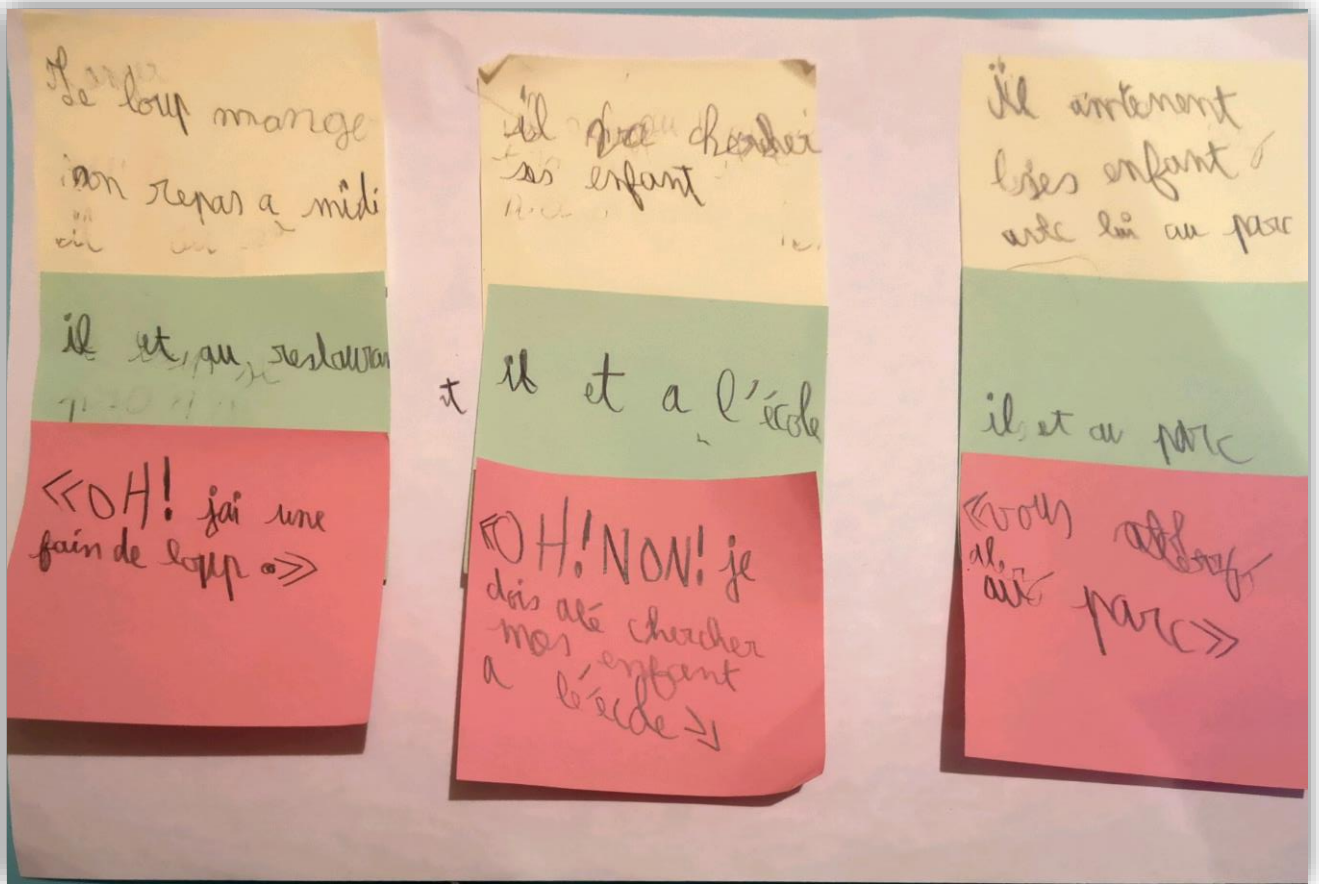 Le loup mange
son repas a midi
il et au restauran
t
«OH! jai une
fain de loup.»
il va chercher
ses enfant
il et a l'école
«OH! NON! je
dois alé chercher
mes enfant
a l'école»
il amtenent
ses enfant
avec lui au parc
il et au parc
«vous
au parc»